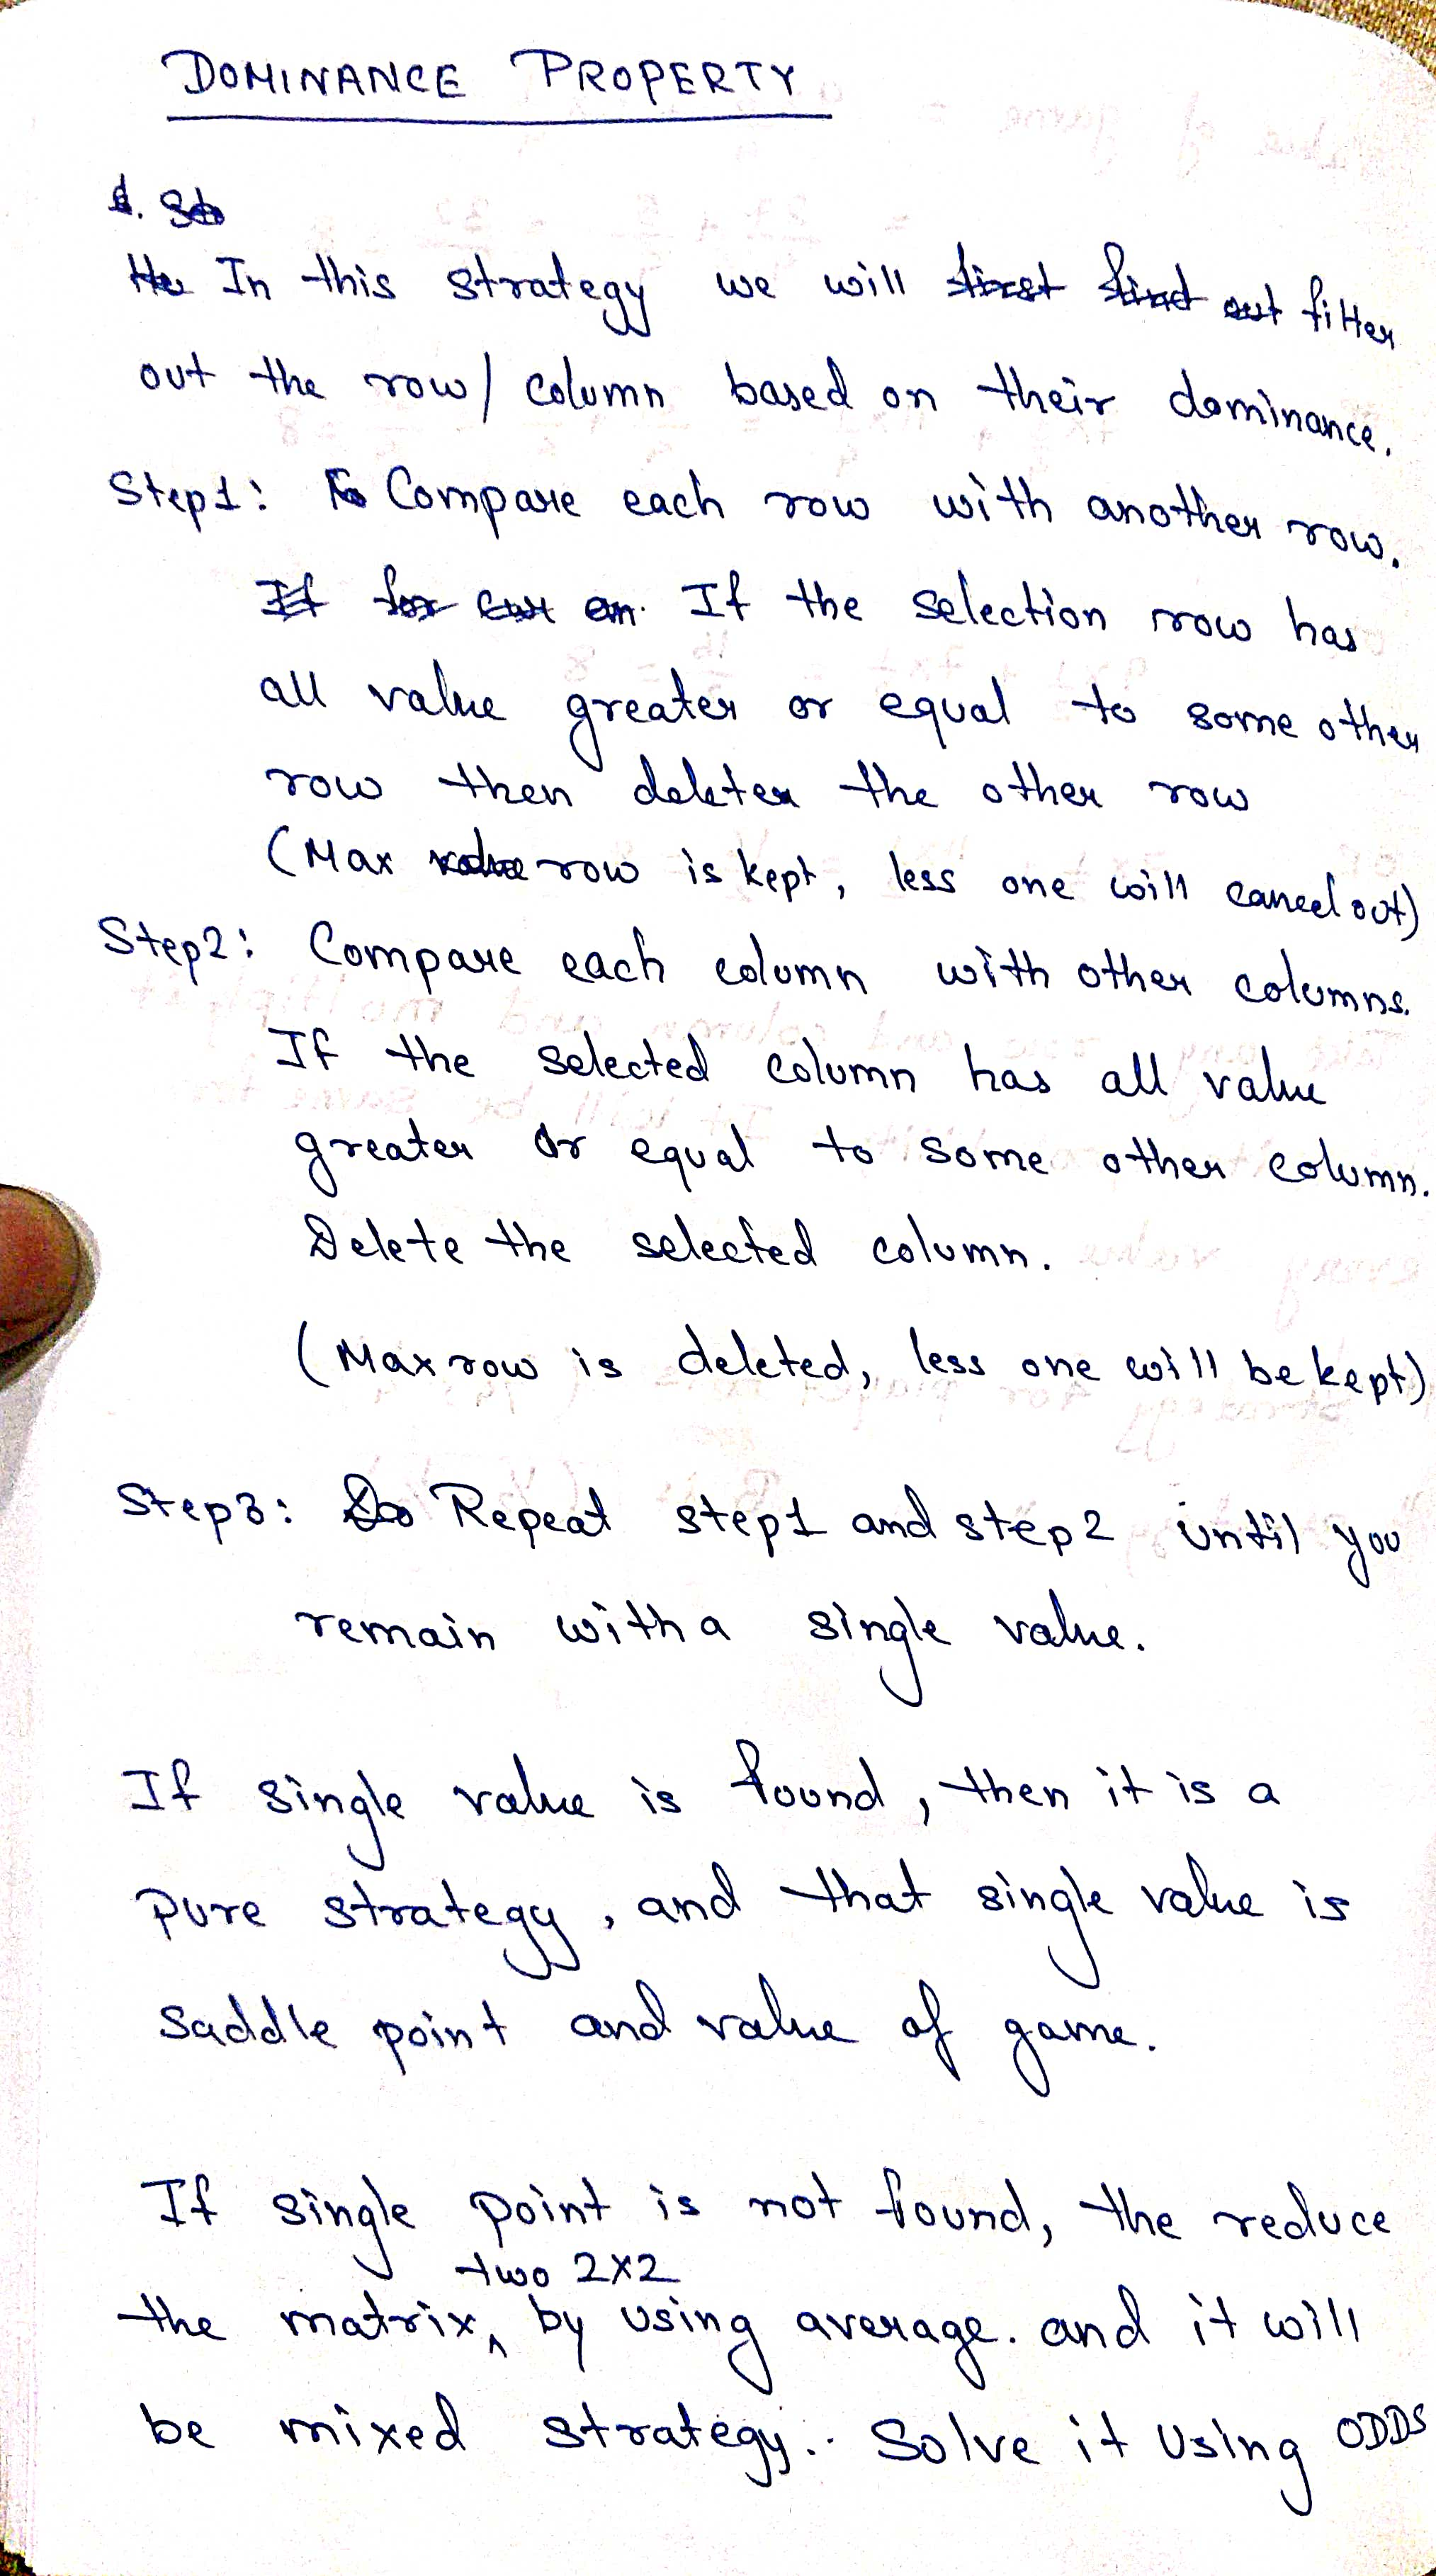 DOMINANCE PROPERTY
In this strategy we will filter
out the row/ column based on their dominance.
Step1: Compare each row with another row.
If the selection row has
all value greater or equal to some other
row then deleter the other row
(Max row is kept, less one will cancel out)
Step2: Compare each column with other columns.
If the selected column has all value
greater or equal to some other column.
Delete the selected column.
(Max row is deleted, less one will be kept)
Step3: Repeat step1 and step2 until you
remain with a single value.
If single value is found, then it is a
pure strategy, and that single value is
saddle point and value of game.
If single point is not found, the reduce
two 2x2
the matrix, by using average. and it will
be mixed strategy.. Solve it using ODDS